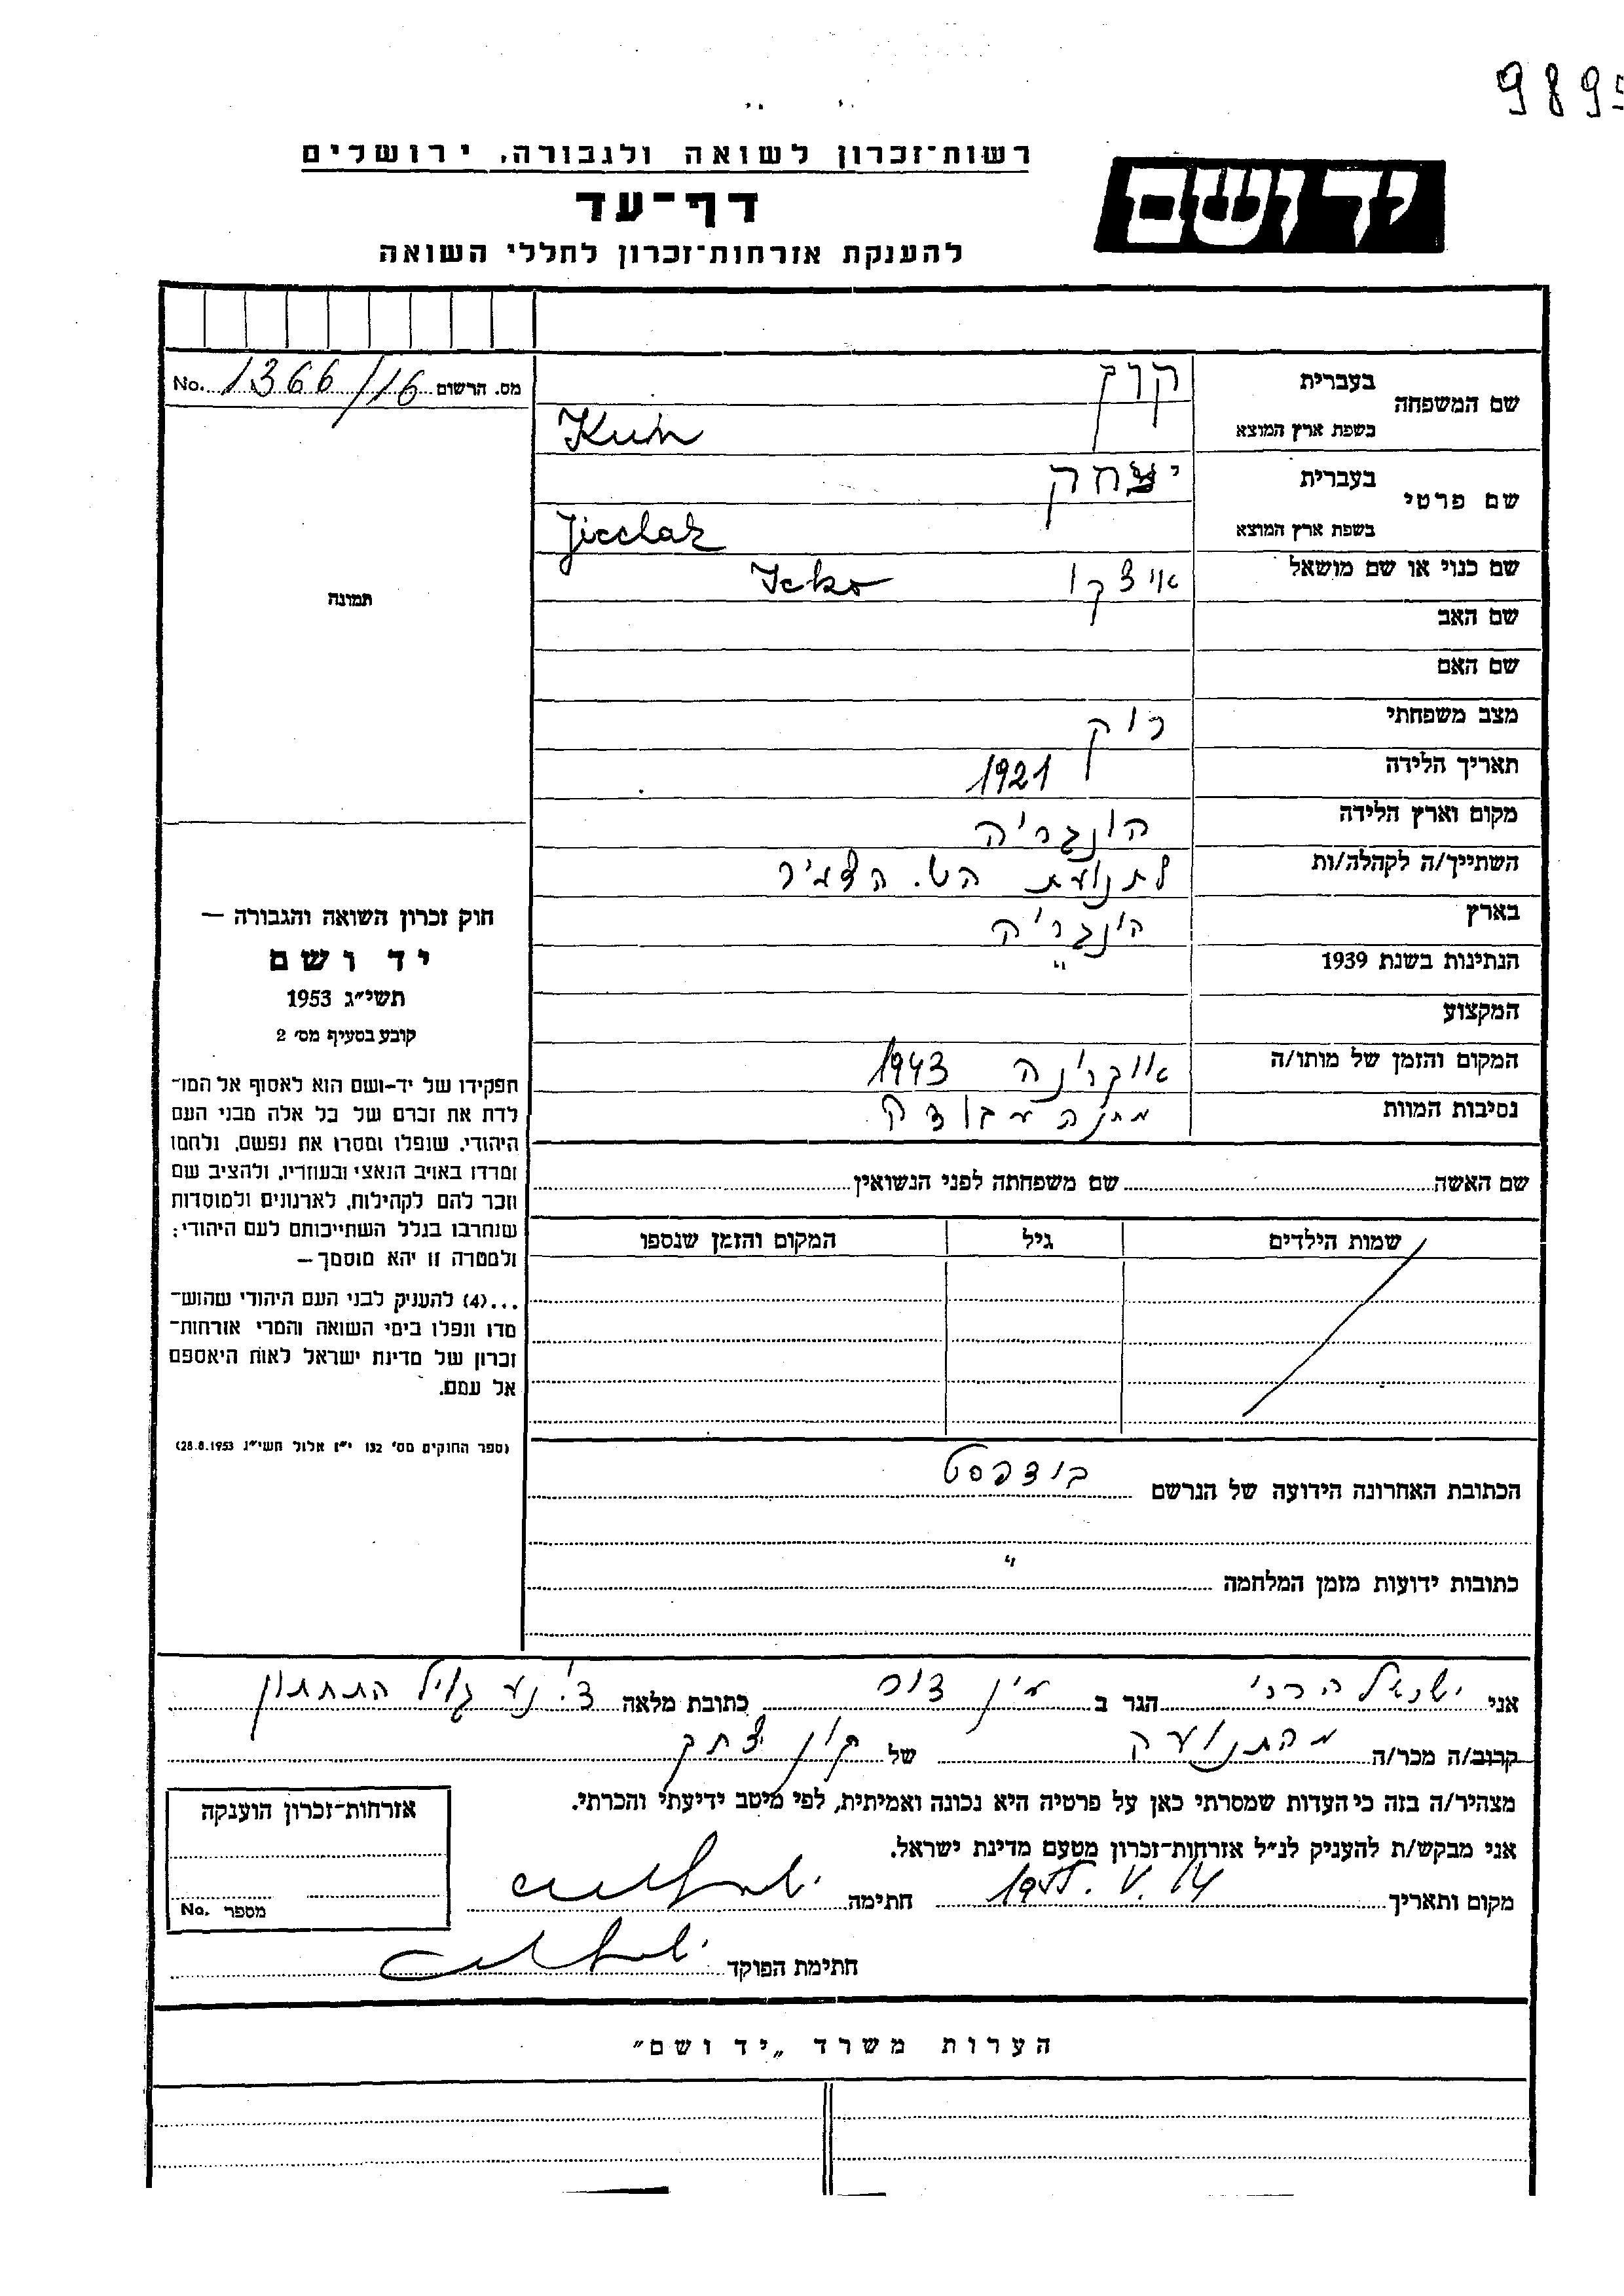 9895
רשות־זכרון לשואה ולגבורה, ירושלים
יד ושם
דף־עד
להענקת אזרחות־זכרון לחללי השואה
מס. הרשום 1366/16 No.
תמונה
שם המשפחה בעברית קון
בשפת ארץ המוצא Kuhn
שם פרטי בעברית יצחק
בשפת ארץ המוצא Jicchak
שם כנוי או שם מושאל איצקו Icko
שם האב
שם האם
מצב משפחתי רוק
תאריך הלידה 1921
מקום וארץ הלידה הונגריה
השתייך/ה לקהלה/ות לתנועת הש. הצעיר
בארץ הונגריה
הנתינות בשנת 1939 "
המקצוע
המקום והזמן של מותו/ה אוקרינה 1943
נסיבות המוות מחנה עבודה
חוק זכרון השואה והגבורה —
יד ושם
תשי״ג 1953
קובע בסעיף מס׳ 2
תפקידו של יד-ושם הוא לאסוף אל המו־
לדת את זכרם של כל אלה מבני העם
היהודי, שנפלו ומסרו את נפשם, נלחמו
ומרדו באויב הנאצי ובעוזריו, ולהציב שם
וזכר להם לקהילות, לארגונים ולמוסדות
שנחרבו בגלל השתייכותם לעם היהודי;
ולמטרה זו יהא מוסמך —
...(4) להעניק לבני העם היהודי שהוש־
מדו ונפלו בימי השואה והמרי אזרחות־
זכרון של מדינת ישראל לאות היאספם
אל עמם.
(ספר החוקים מס׳ 132 י״ז אלול תשי״ג 28.8.1953)
שם האשה שם משפחתה לפני הנשואין
שמות הילדים גיל המקום והזמן שנספו
הכתובת האחרונה הידועה של הנרשם בודפסט
כתובות ידועות מזמן המלחמה "
אני ישראל הררי הגר ב עין דור כתובת מלאה ד. נע גליל התחתון
קרוב/ה מכר/ה מהתנועה של קון יצחק
מצהיר/ה בזה כי העדות שמסרתי כאן על פרטיה היא נכונה ואמיתית, לפי מיטב ידיעתי והכרתי.
אני מבקש/ת להעניק לנ״ל אזרחות־זכרון מטעם מדינת ישראל.
מקום ותאריך 14. V. 1955 חתימה
חתימת הפוקד
אזרחות־זכרון הוענקה
מספר No.
הערות משרד „יד ושם״